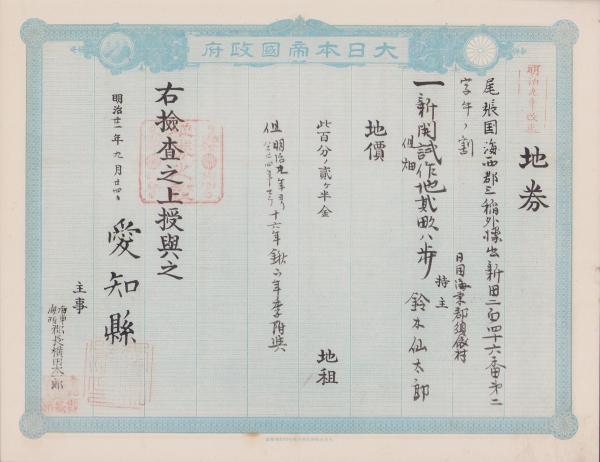 大日本帝國政府
明治九年改正
地券
尾張国海西郡三稲外條出新田二百四十六番第二
字午ノ割
一新開試作地貳畝八歩
但畑
持主
日国海東郡須依村
鈴木仙太郎
地價
地租
此百分ノ貳ヶ半金
但明治九年ヨリ
十六年鍬下年季附與
右撿査之上授與之
明治廿一年九月廿四日
愛知縣
主事